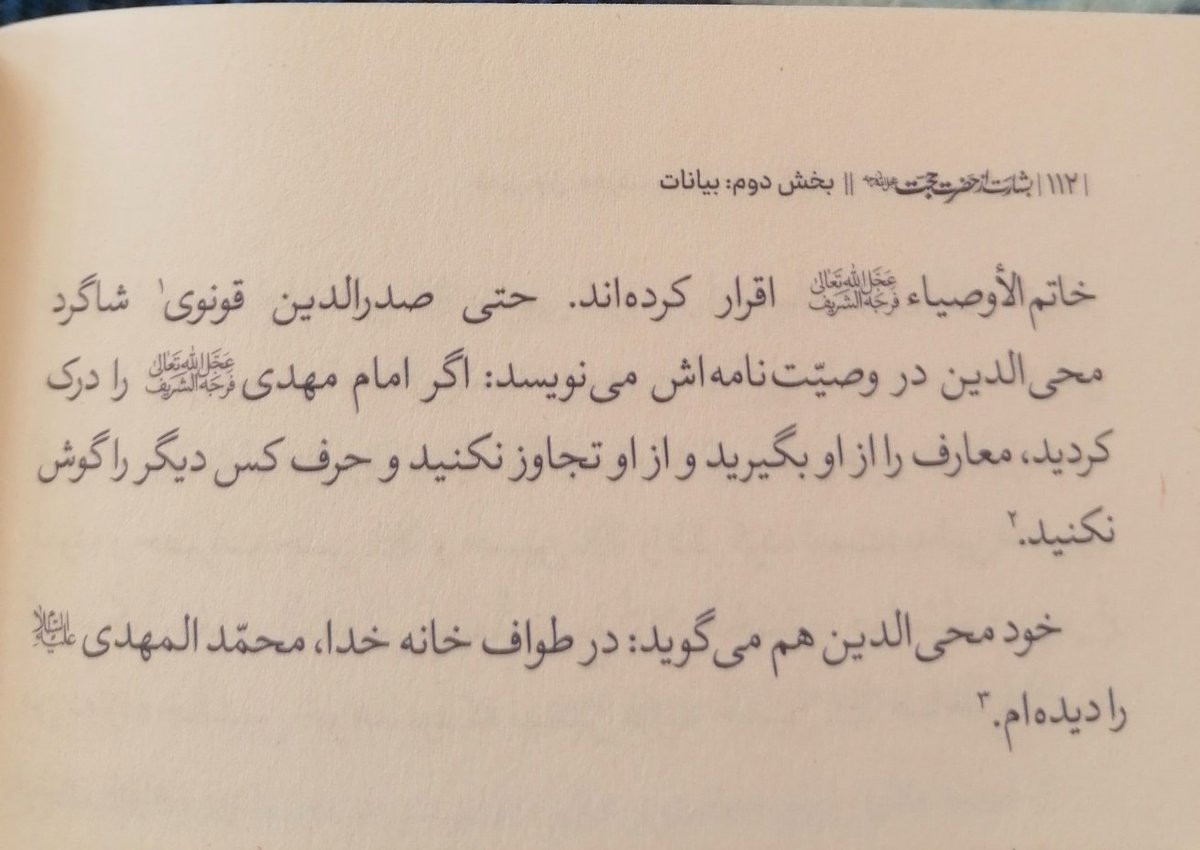 |۱۱۲| بشارت از حضرت حجت || بخش دوم: بیانات
خاتم‌الأوصیاء عَجَّلَ‌اللهُ‌تَعَالیٰ فَرَجَهُ‌الشَّرِیف اقرار کرده‌اند. حتی صدرالدین قونوی۱ شاگرد
محی‌الدین در وصیّت‌نامه‌اش می‌نویسد: اگر امام مهدی عَجَّلَ‌اللهُ‌تَعَالیٰ فَرَجَهُ‌الشَّرِیف را درک
کردید، معارف را از او بگیرید و از او تجاوز نکنید و حرف کس دیگر را گوش
نکنید.۲
خود محی‌الدین هم می‌گوید: در طواف خانه خدا، محمّد المهدی علیه‌السلام
را دیده‌ام.۳